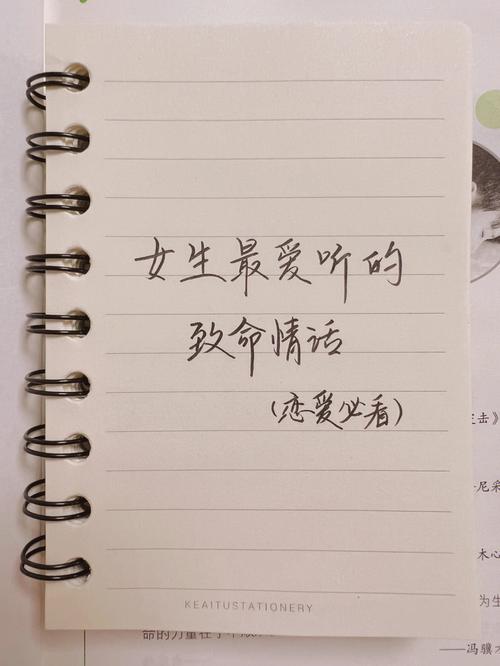 女生最爱听的
致命情话
(恋爱必看)
KEAITUSTATIONERY
击》
尼采
木心
为生
命的力量在于不顺
——冯骥